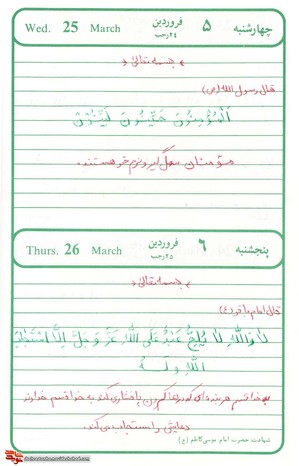 Wed. 25 March فروردین ۵ چهارشنبه
۲۴رجب
« بسمه تعالی »
قال رسول الله (ص)
اَلْمُؤْمِنُونَ هَیِّنُونَ لَیِّنُونَ
مؤمنان سهل گیر و نرم خو هستند.
Thurs. 26 March فروردین ۶ پنجشنبه
۲۵رجب
« بسمه تعالی »
قال امام باقر (ع)
لا وَاللهِ لا یُلِحُّ عَبْدٌ عَلَی اللهِ عَزَّ وَ جَلَّ اِلّا اسْتَجابَ
اللهُ لَهُ
به خدا قسم هر بنده ای که بدرگاه پافشاری کند به خدا قسم خداوند
دعایش را مستجاب می کند.
شهادت حضرت امام موسی کاظم (ع)